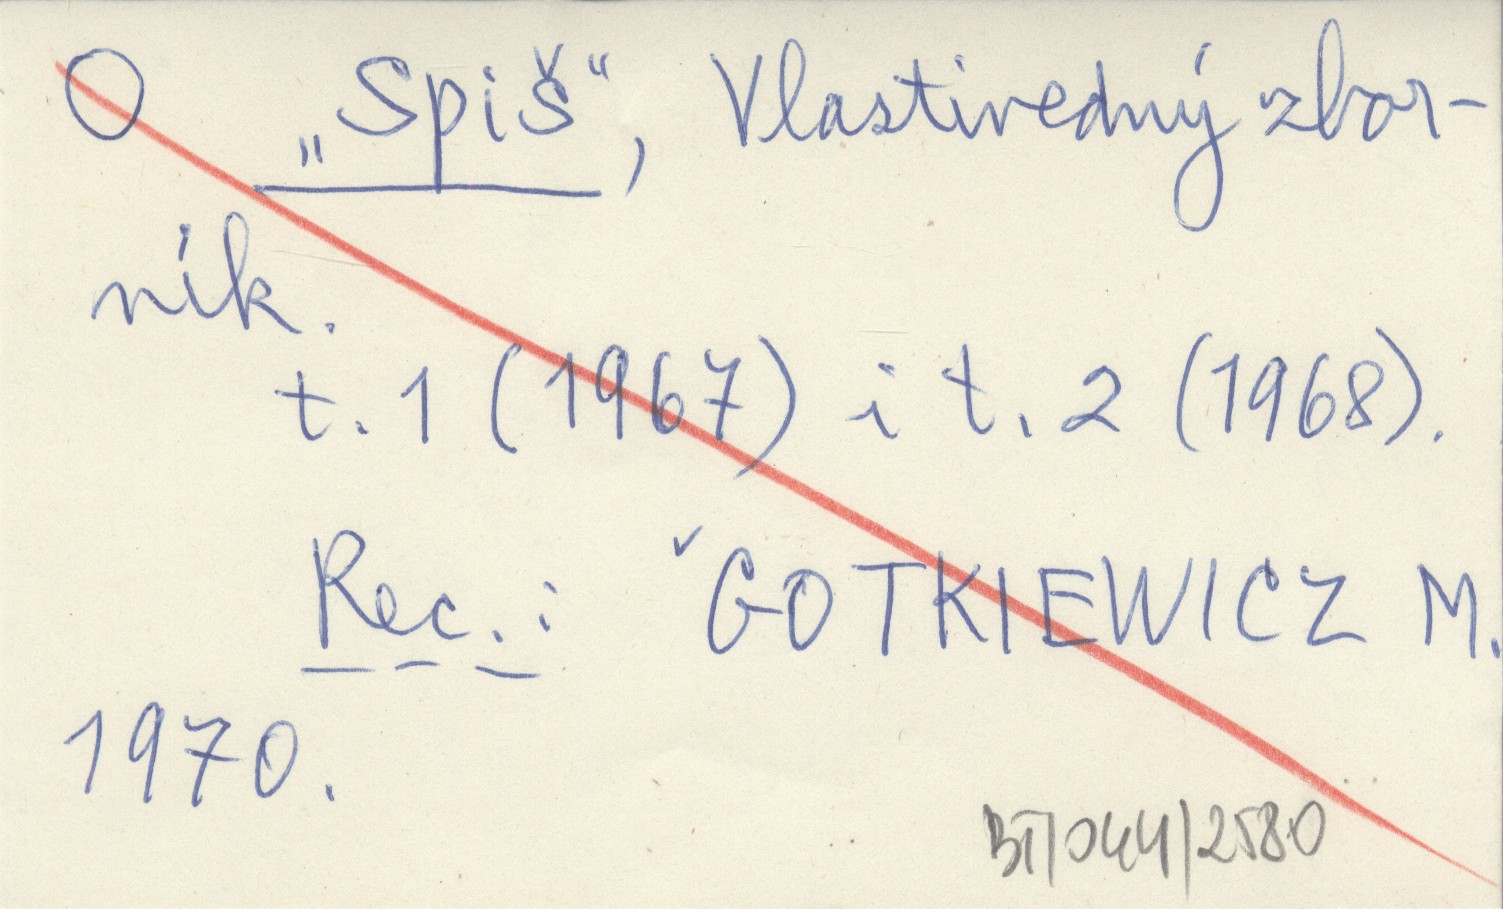 O „Spiš“, Vlastivedný zbor-
ník.
t. 1 (1967) i t. 2 (1968).
Rec.: ˇGOTKIEWICZ M.
1970.
BT/044/2580